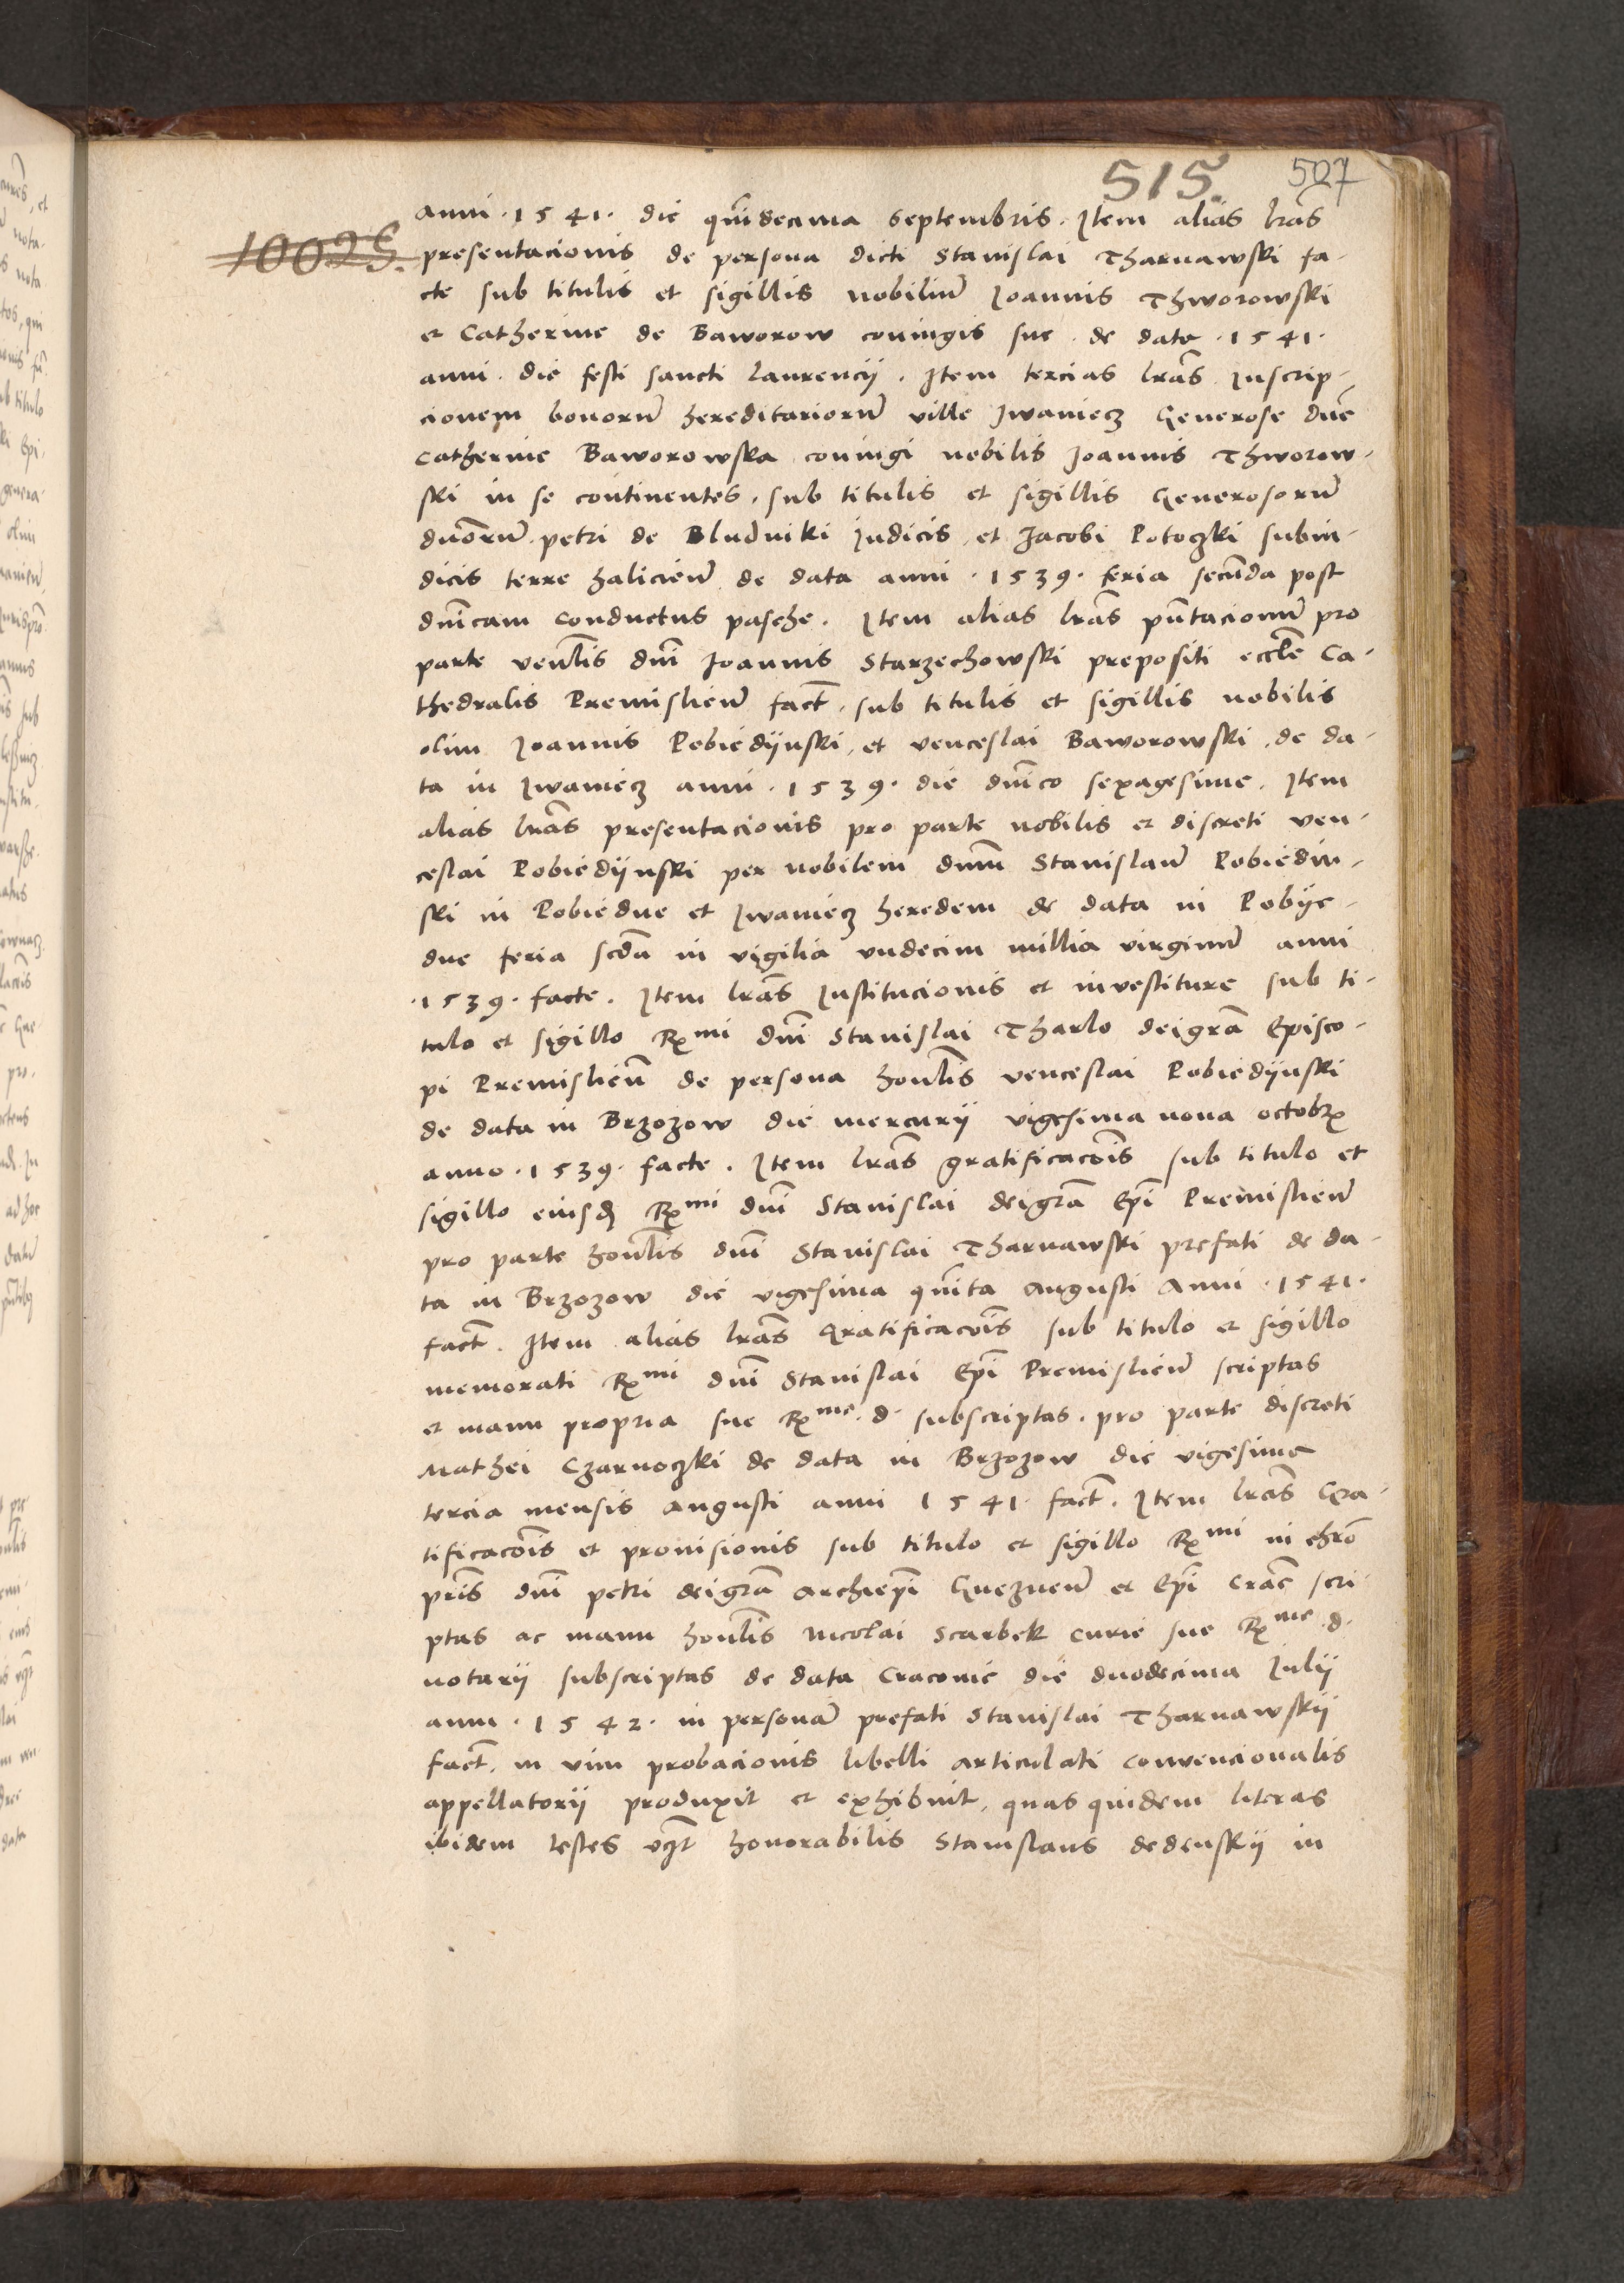 515. 507
anni · 1541 · die quīdecima Septembris. Item alias lrās
10025.
presentacionis de persona dicti Stanislai Tharnawski fa-
cte sub titulis et sigillis nobiliū Joannis Thworowski
et Catherine de Baworow coniugis sue de data · 1541 ·
anni die festi sancti Laurencij. Item tercias lrās Inscrip-
cionem bonorū hereditariorū ville Jwaniecz Generose dnē
Catherine Baworowska coniugi nobilis Joannis Thworow-
ski in se continentes, sub titulis et sigillis Generosorū
dnōrū petri de Bludniki Judicis et Jacobi Potoczki subiu-
dicis terre halicieñ de data anni · 1539 · feria secūda post
dnīcam Conductus pasche. Item alias lrās pn̄tacionū pro
parte venlīs dnī Joannis Starzechowski prepositi eccle Ca-
thedralis Premislieñ fact̄. sub titulis et sigillis nobilis
olim Joannis Pobiedijnski, et venceslai Baworowski, de da-
ta in Jwaniecz anni · 1539 · die dnīco sexagesime. Item
alias lrās presentacionis pro parte nobilis et discreti ven-
ceslai Pobiedijnski per nobilem dnum Stanislaū Pobiedin-
ski in Pobiedne et Jwaniecz heredem de data in Pobije-
dne feria scda in vigilia vndecim millia virginū anni
· 1539 · facte. Item lrās Institucionis et investiture sub ti-
tulo et sigillo Rmi dnī Stanislai Tharlo deigrā Episco-
pi Premislieñ de persona honlīs venceslai Pobiedijnski
de data in Brzozow die mercurij vigesima nona octobr
anno · 1539 · facte. Item lrās gratificacōis sub titulo et
sigillo eiusd Rmi dnī Stanislai deigrā Epī Premislieñ
pro parte honlīs dnī Stanislai Tharnawski prefati de da-
ta in Brzozow die vigesima quīta Augusti Anni · 1541 ·
fact̄. Item alias lrās Gratificacōis sub titulo et sigillo
memorati Rmi dnī Stanislai Epī Premislieñ scriptas
et manu propria sue Rme d. subscriptas. pro parte discreti
Mathei Czarnoczki de data in Brzozow die vigesima
tercia mensis Augusti anni 1541 fact̄. Item lrās Gra-
tificacōis et prouisionis sub titulo et sigillo Rmi in chrō
pris dnī petri deigrā Archiepī Gnezneñ et Epī Crac̄ scri-
ptas ac manu honlīs Nicolai Scarbek curie sue Rme d.
notarij subscriptas de data Cracouie die duodecima Julij
anni · 1542 · in personā prefati Stanislai Tharnawskij
fact̄. in vim probacionis libelli articulati conuencionalis
appellatorij produxit et exhibuit, quas quidem literas
ibidem testes vꝫt honorabilis Stanislaus dedenskij in